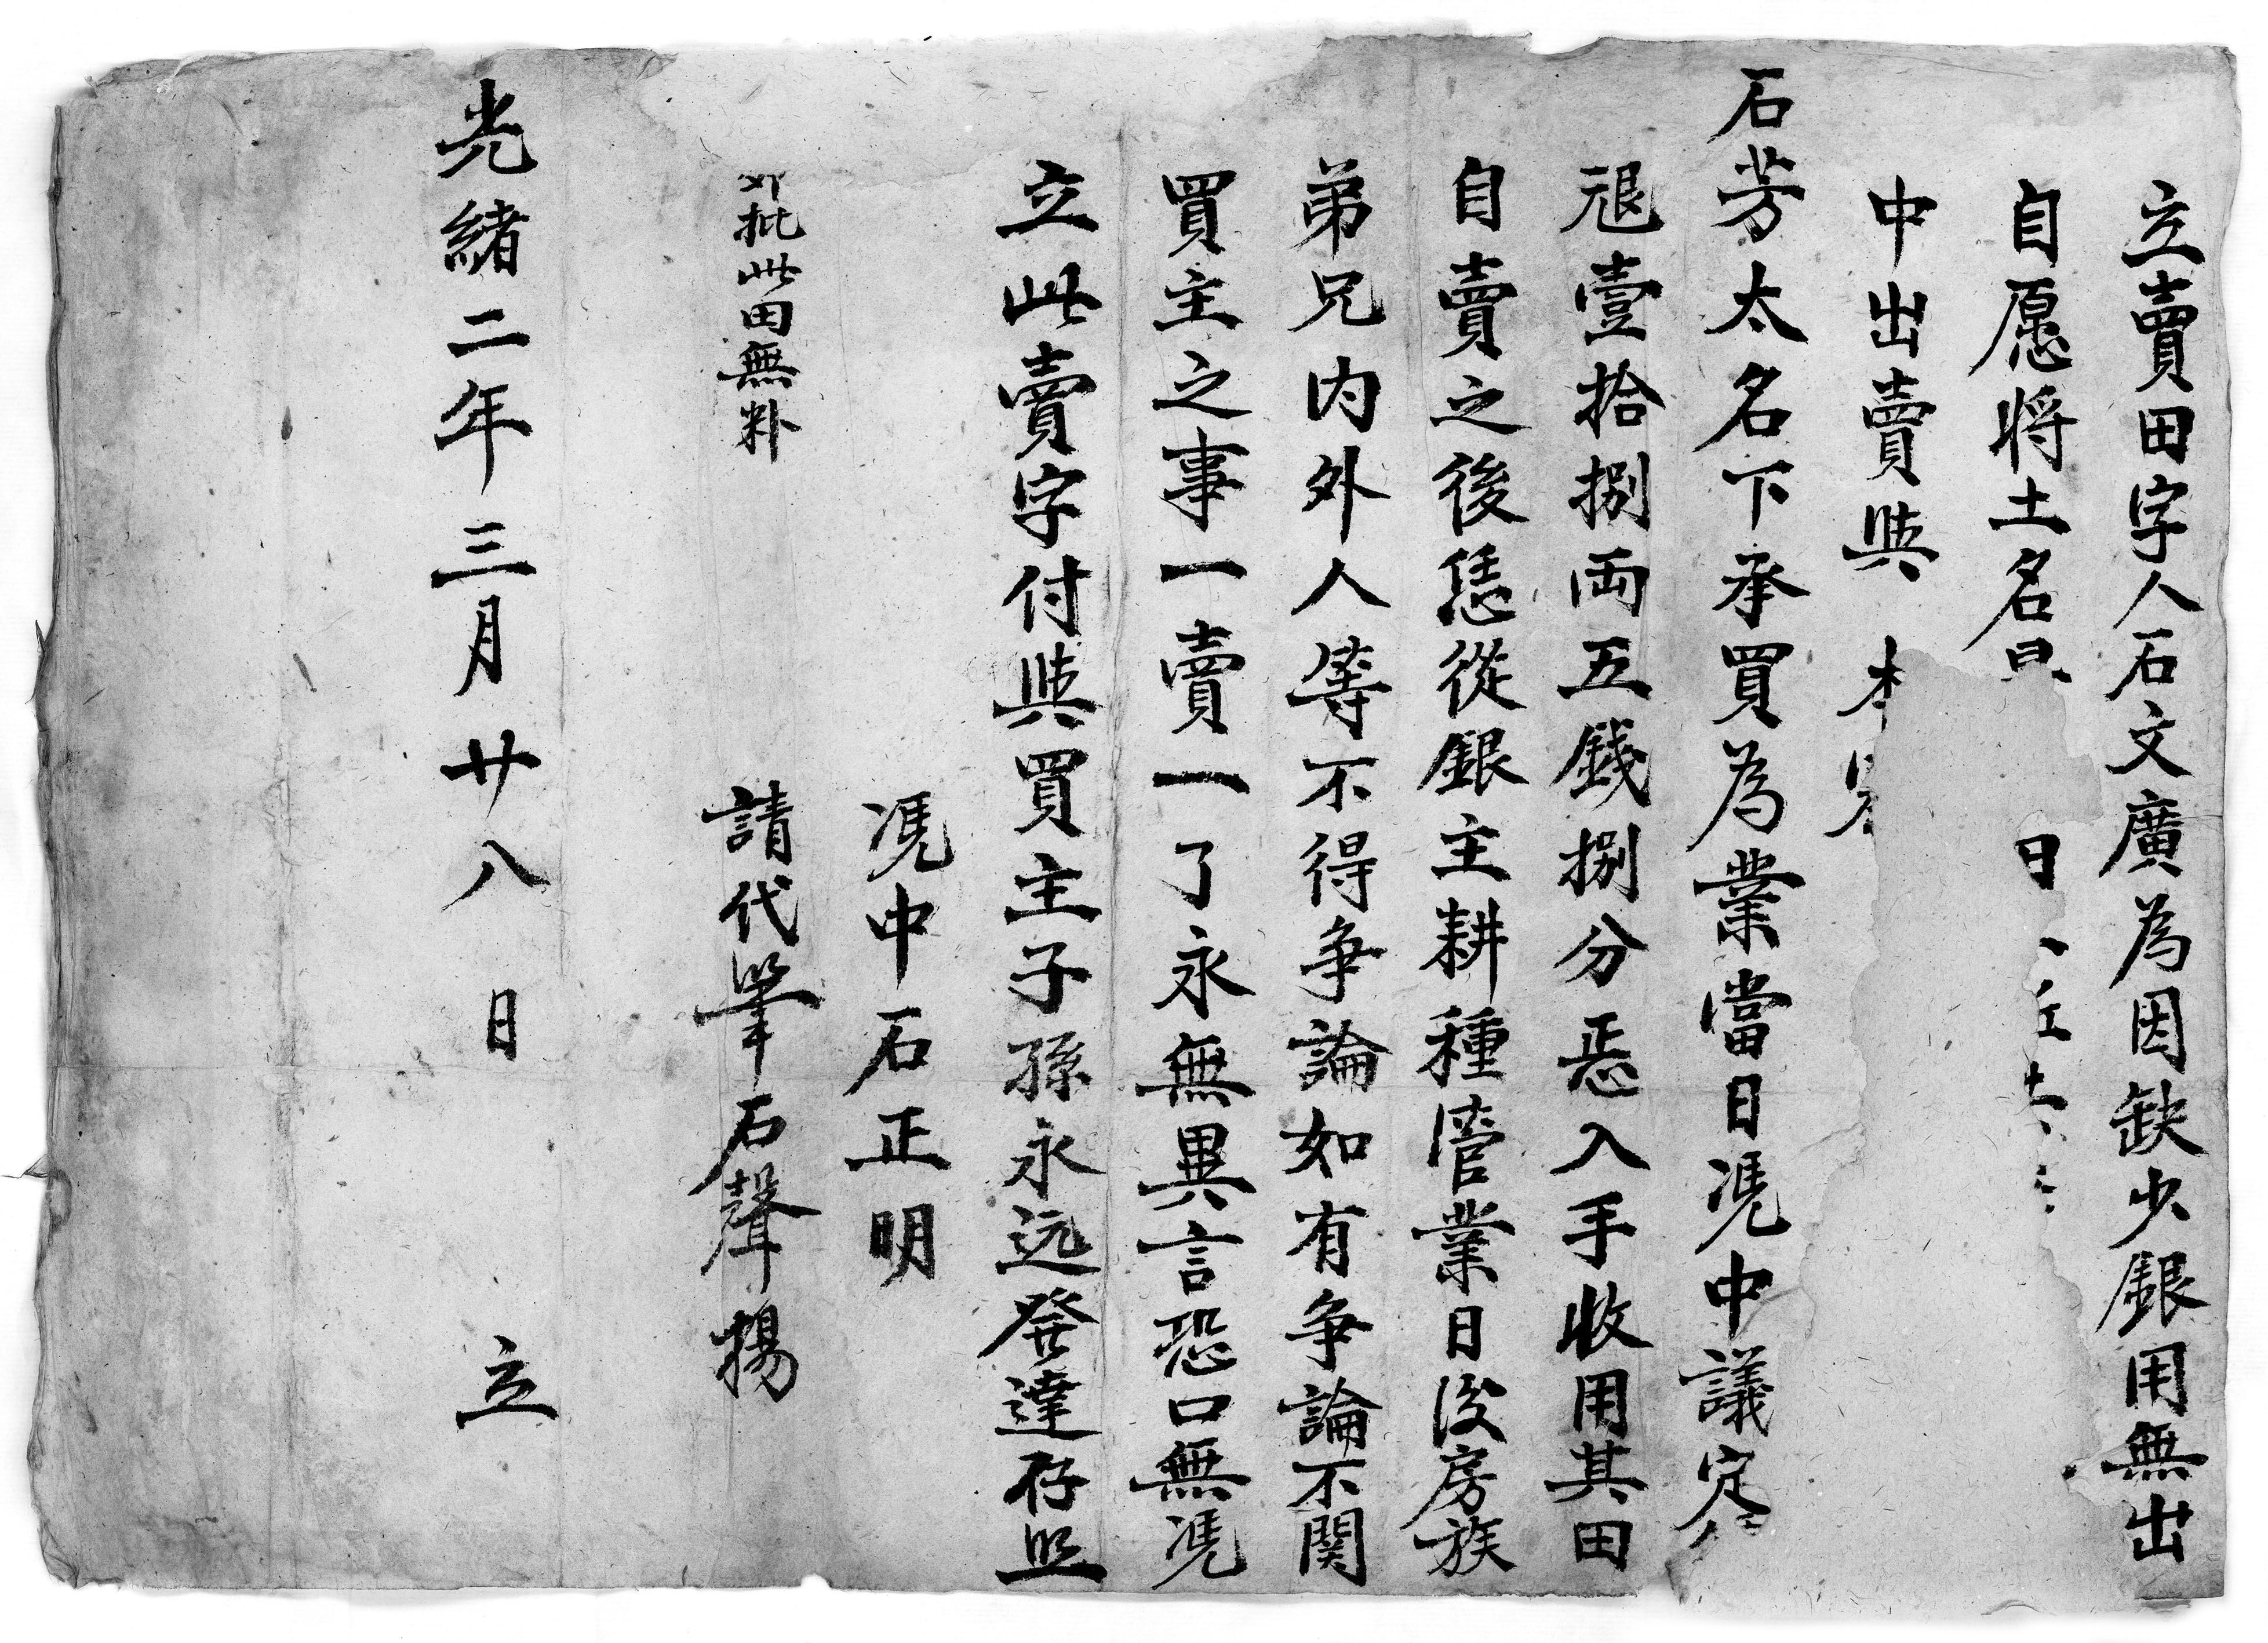 立賣田字人石文廣為因缺少銀用無出
自愿將土名 日
中出賣與 本
石芳太名下承買為業當日凴中議定
視壹拾捌両五錢捌分悉入手收用其田
自賣之後恁從銀主耕種管業日后房族
弟兄内外人等不得争論如有争論不関
買主之事一賣一了永無異言恐口無凴
立此賣字付與買主子孫永远発達存照
凴中石正明
批此田無粆
請代筆石聲揚
光緒二年三月廿八日 立